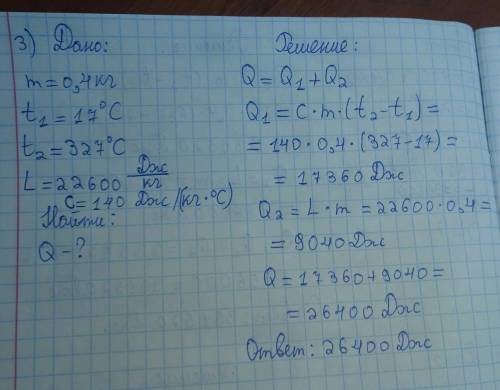 3) Дано:
m = 0,4 кг
t₁ = 17°C
t₂ = 327°C
L = 22600 Дж/кг
C = 140 Дж/(кг·°C)
Найти:
Q - ?
Решение:
Q = Q₁ + Q₂
Q₁ = C · m · (t₂ - t₁) =
= 140 · 0,4 · (327 - 17) =
= 17360 Дж
Q₂ = L · m = 22600 · 0,4 =
= 9040 Дж
Q = 17360 + 9040 =
= 26400 Дж
Ответ: 26400 Дж